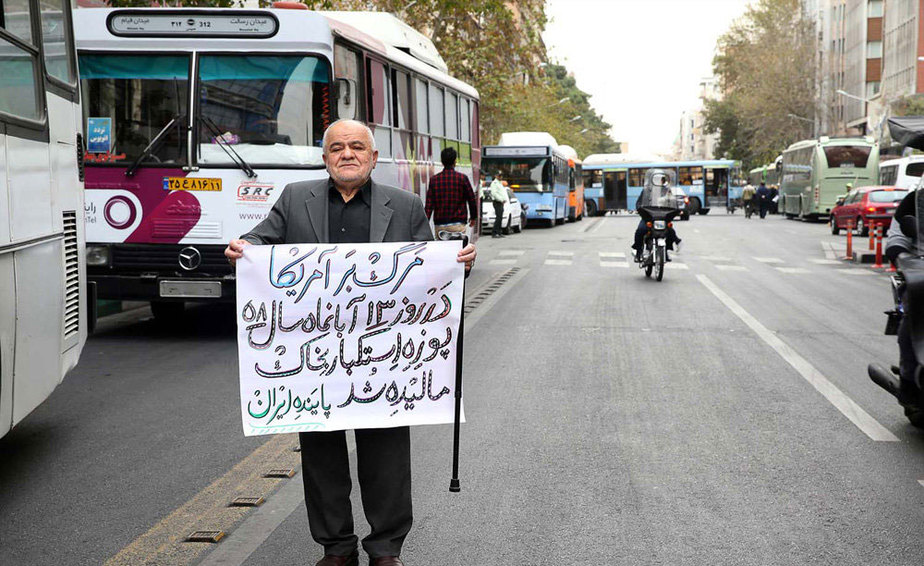 میدان قیام ۳۱۲ 312 میدان رسالت
SRC
مرگ بر آمریکا
در روز ۱۳ آبانماه سال ۵۸
پوزه استکبار بخاک
مالیده شد پاینده ایران